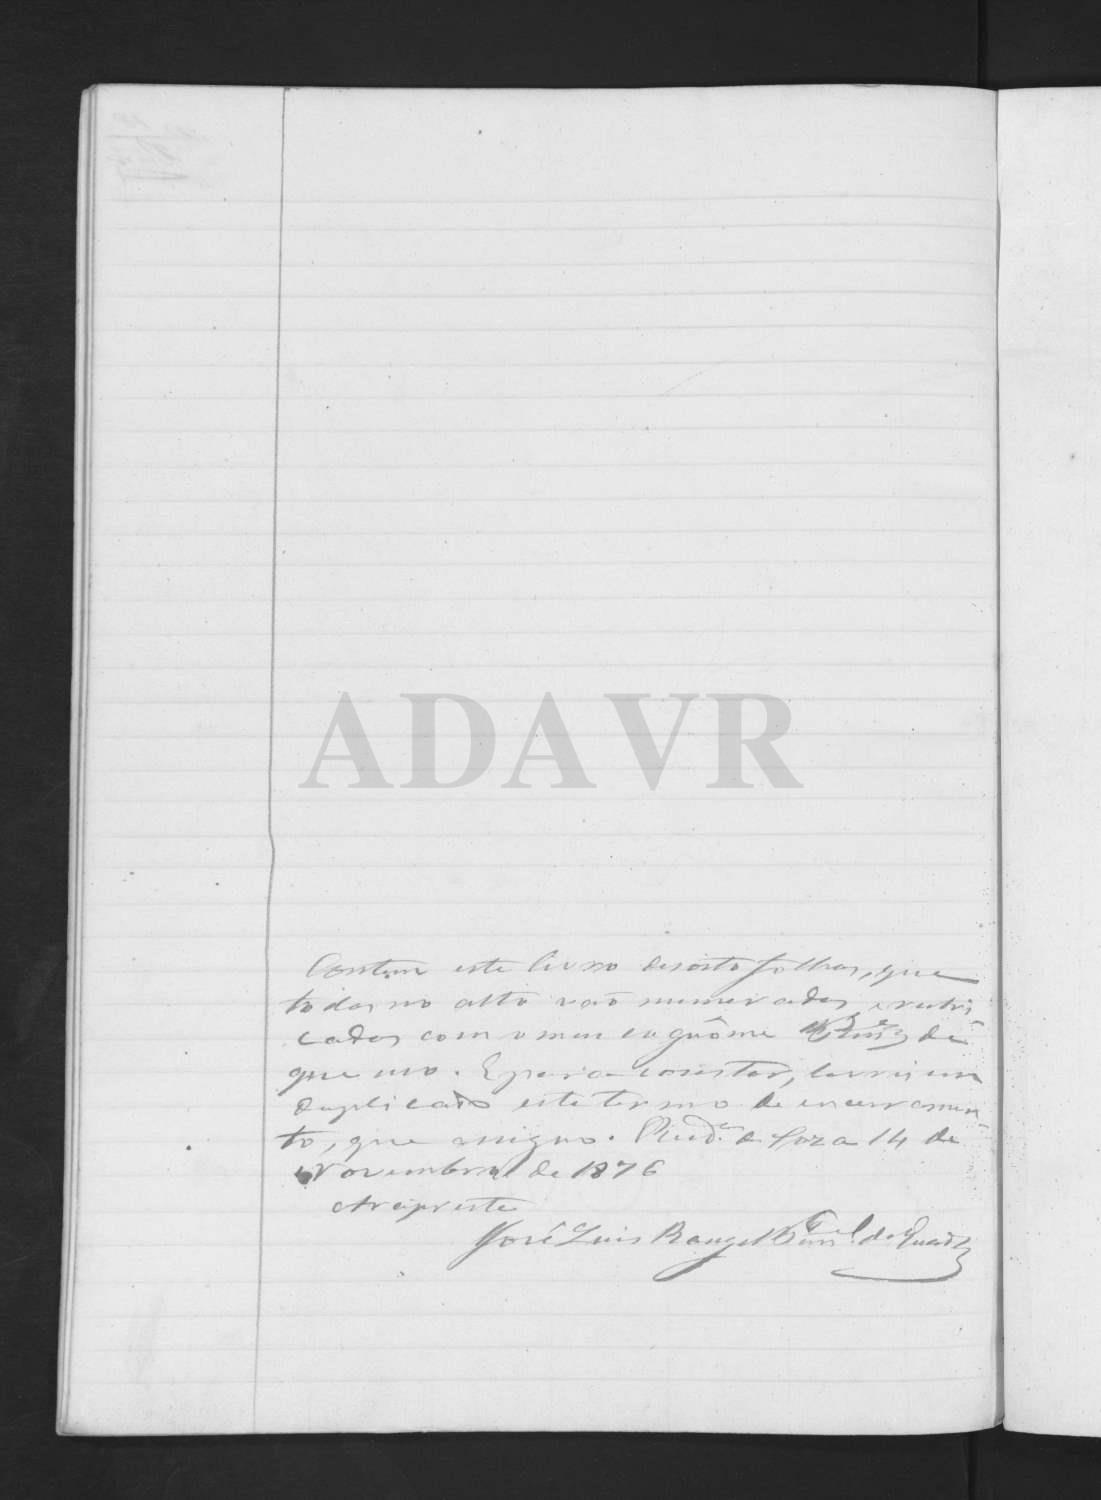 ADAVR
Contem este livro desoito folhas, que
todas no alto vaõ numeradas e rubri-
cadas com o meu cognôme de
que uso. E para constar, lavrei em
duplicado este termo de encerramen-
to, que assigno. Rezd.ª de Loza 14 de
Novembro de 1876
O Arcipreste
José Luis Rangel de Quadros